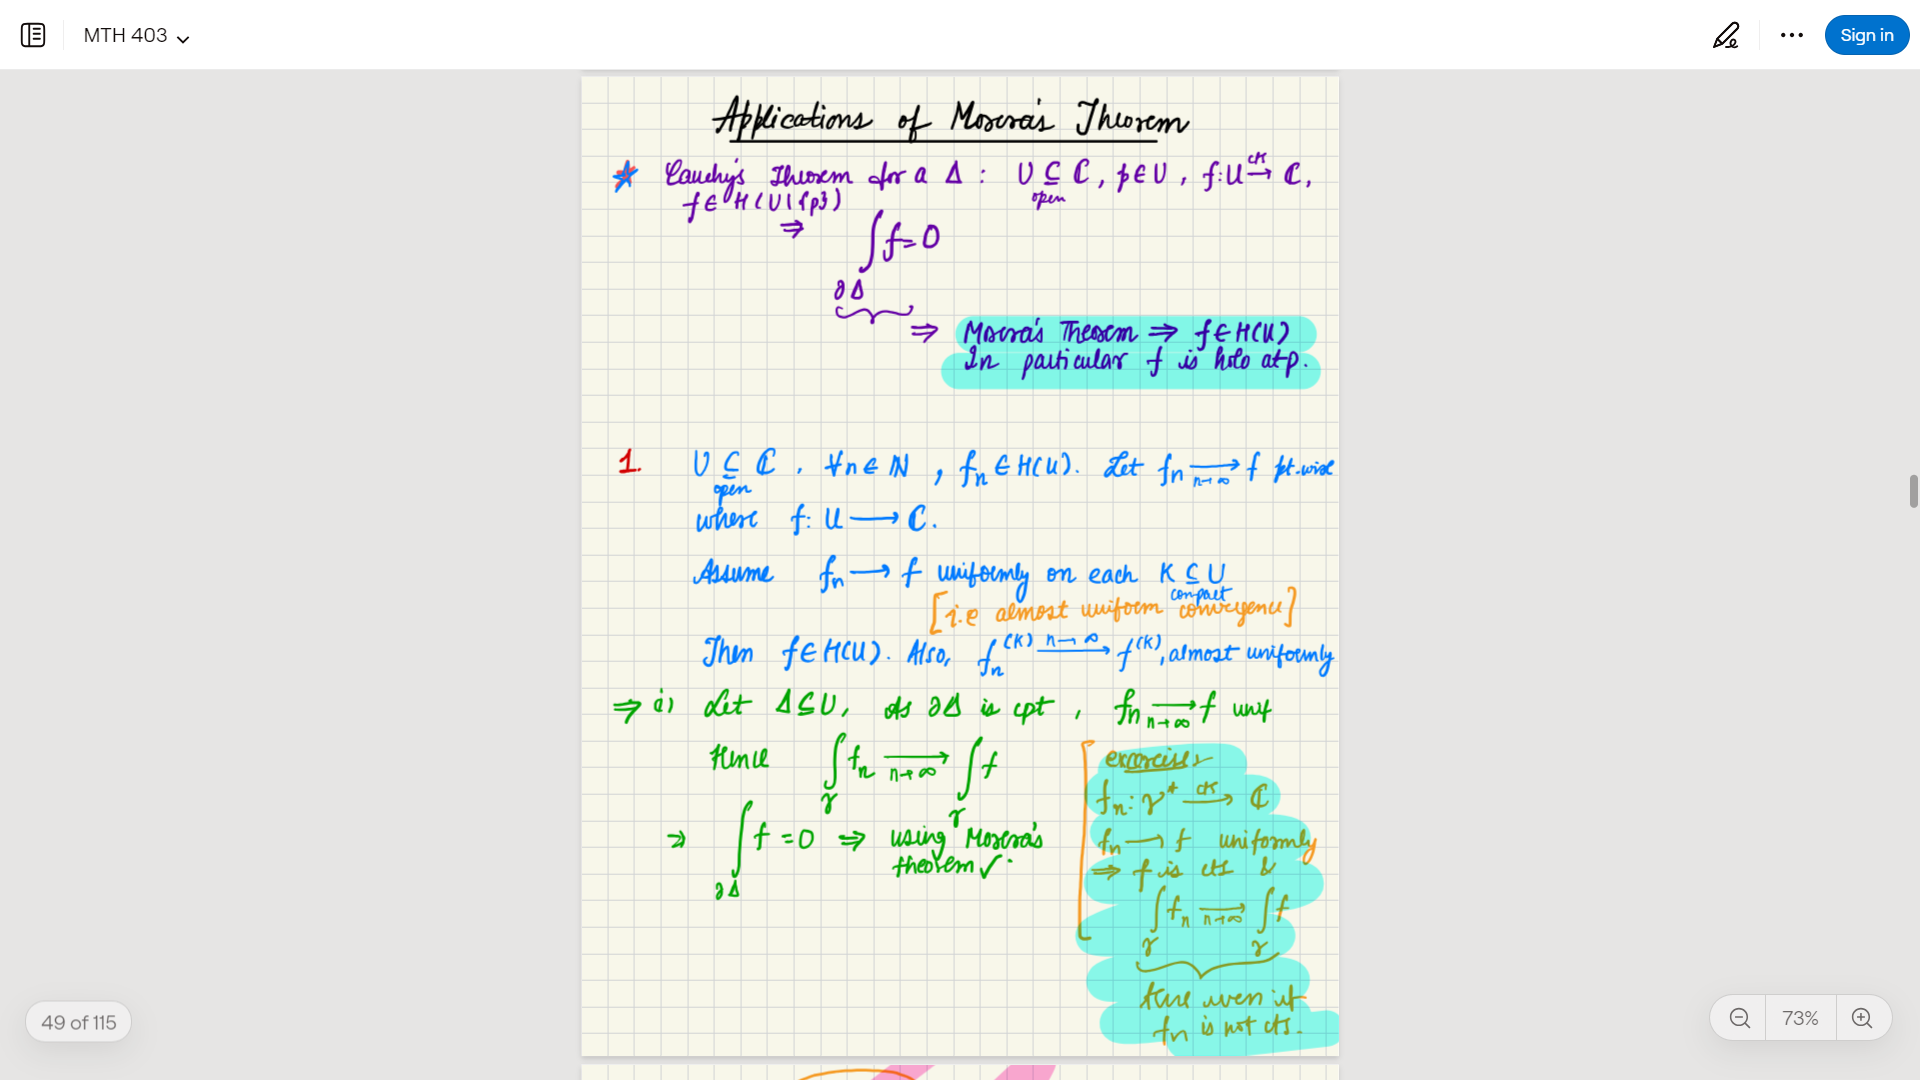 MTH 403
Sign in
Applications of Morera's Theorem
Cauchy's Theorem for a Δ : U ⊆ ℂ, p∈U, f:U →^cts ℂ,
open
f∈H(U\{p})
⇒ ∫ f=0
∂Δ
⇒ Morera's Theorem ⇒ f∈H(U)
In particular f is holo at p.
1. U ⊆ ℂ, ∀n∈ℕ, fₙ∈H(U). Let fₙ → f pt.wise
open n→∞
where f: U ⟶ ℂ.
Assume fₙ ⟶ f uniformly on each K ⊆ U
compact
[i.e almost uniform convergence]
Then f∈H(U). Also, fₙ^(K) n→∞ ⟶ f^(K), almost uniformly
⇒ i) Let Δ⊆U, As ∂Δ is cpt, fₙ → f unif
n→∞
Hence ∫ fₙ → ∫ f
γ n→∞ γ
⇒ ∫ f =0 ⇒ using Morera's
∂Δ theorem ✓.
exercise
fₙ: γ* →^cts ℂ
fₙ ⟶ f uniformly
⇒ f is cts &
∫ fₙ → ∫ f
γ n→∞ γ
true even if
fₙ is not cts.
49 of 115
73%